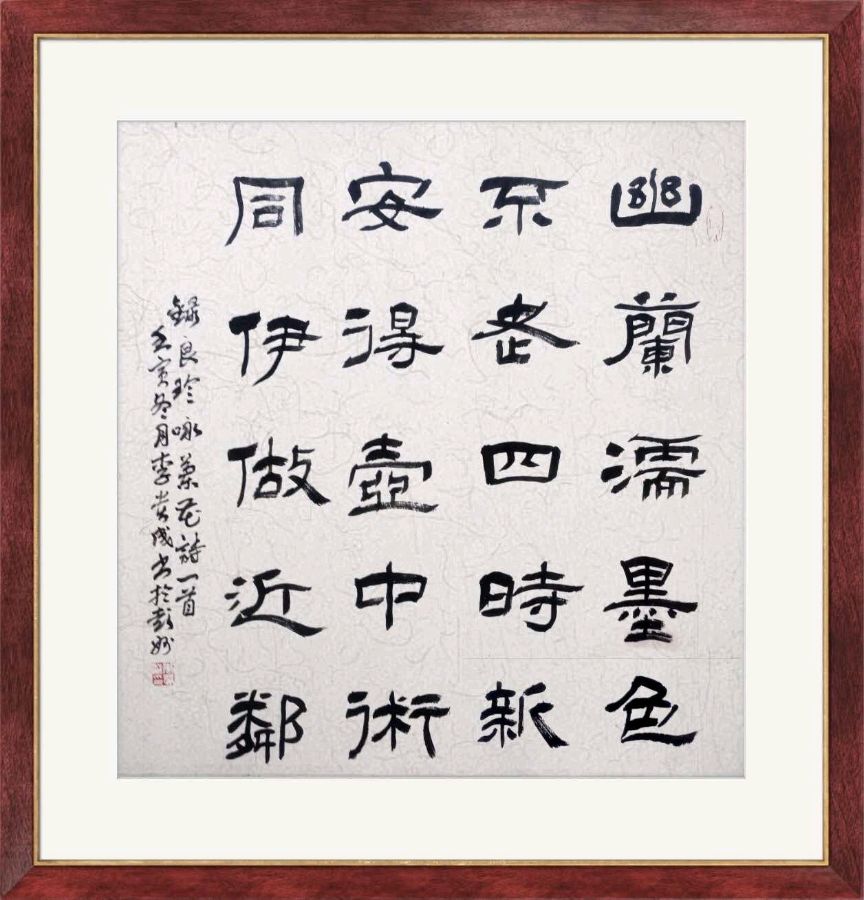 幽蘭濡墨色
不老四時新
安得壺中術
同伊做近鄰
録良珍咏蘭花詩一首
壬寅冬月李成書於彭州